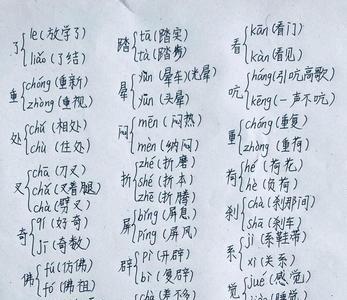 了 le (放学了)
liǎo (了结)
重 chóng (重新)
zhòng (重视)
处 chǔ (相处)
chù (住处)
叉 chā (刀叉)
chǎ (叉着腿)
chà (劈叉)
奇 qí (好奇)
jī (奇数)
佛 fú (仿佛)
fó (佛祖)
踏 tā (踏实)
tà (踏步)
晕 yùn (晕车)(光晕)
yūn (头晕)
闷 mēn (闷热)
mèn (纳闷)
折 zhé (折磨)
shé (折本)
zhē (折腾)
屏 bǐng (屏息)
píng (屏风)
辟 pì (开辟)
bì (复辟)
chà (差不多)
看 kān (看门)
kàn (看见)
吭 háng (引吭高歌)
kēng (一声不吭)
重 chóng (重复)
zhòng (重荷)
荷 hé (荷花)
hè (负荷)
刹 chà (刹那间)
shā (刹车)
系 jì (系鞋带)
xì (关系)
觉 jué (感觉)